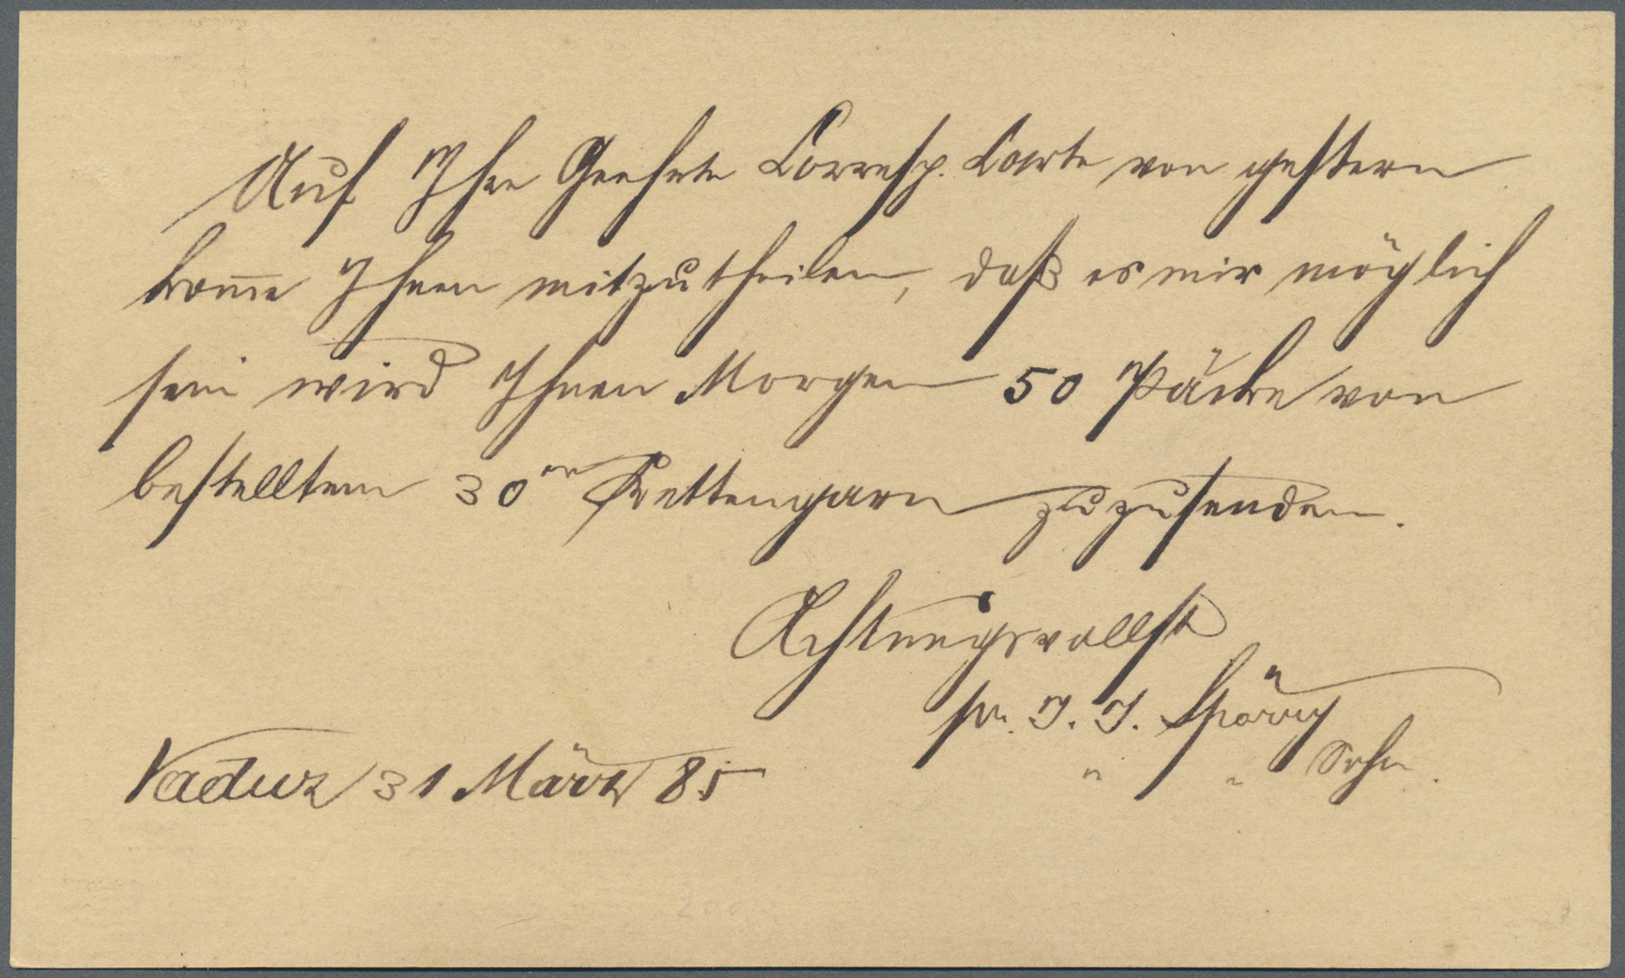 Auf Ihre Geehrte Corresp. Carte von gestern
kom̅e Ihnen mitzutheilen, daß es mir möglich
sein wird Ihnen Morgen 50 Päcke von
bestelltem 30er Kettengarn zuzusenden.
Achtungsvollst
pr. J. J. Spörry
" " Sohn.
Vaduz 31 März 85